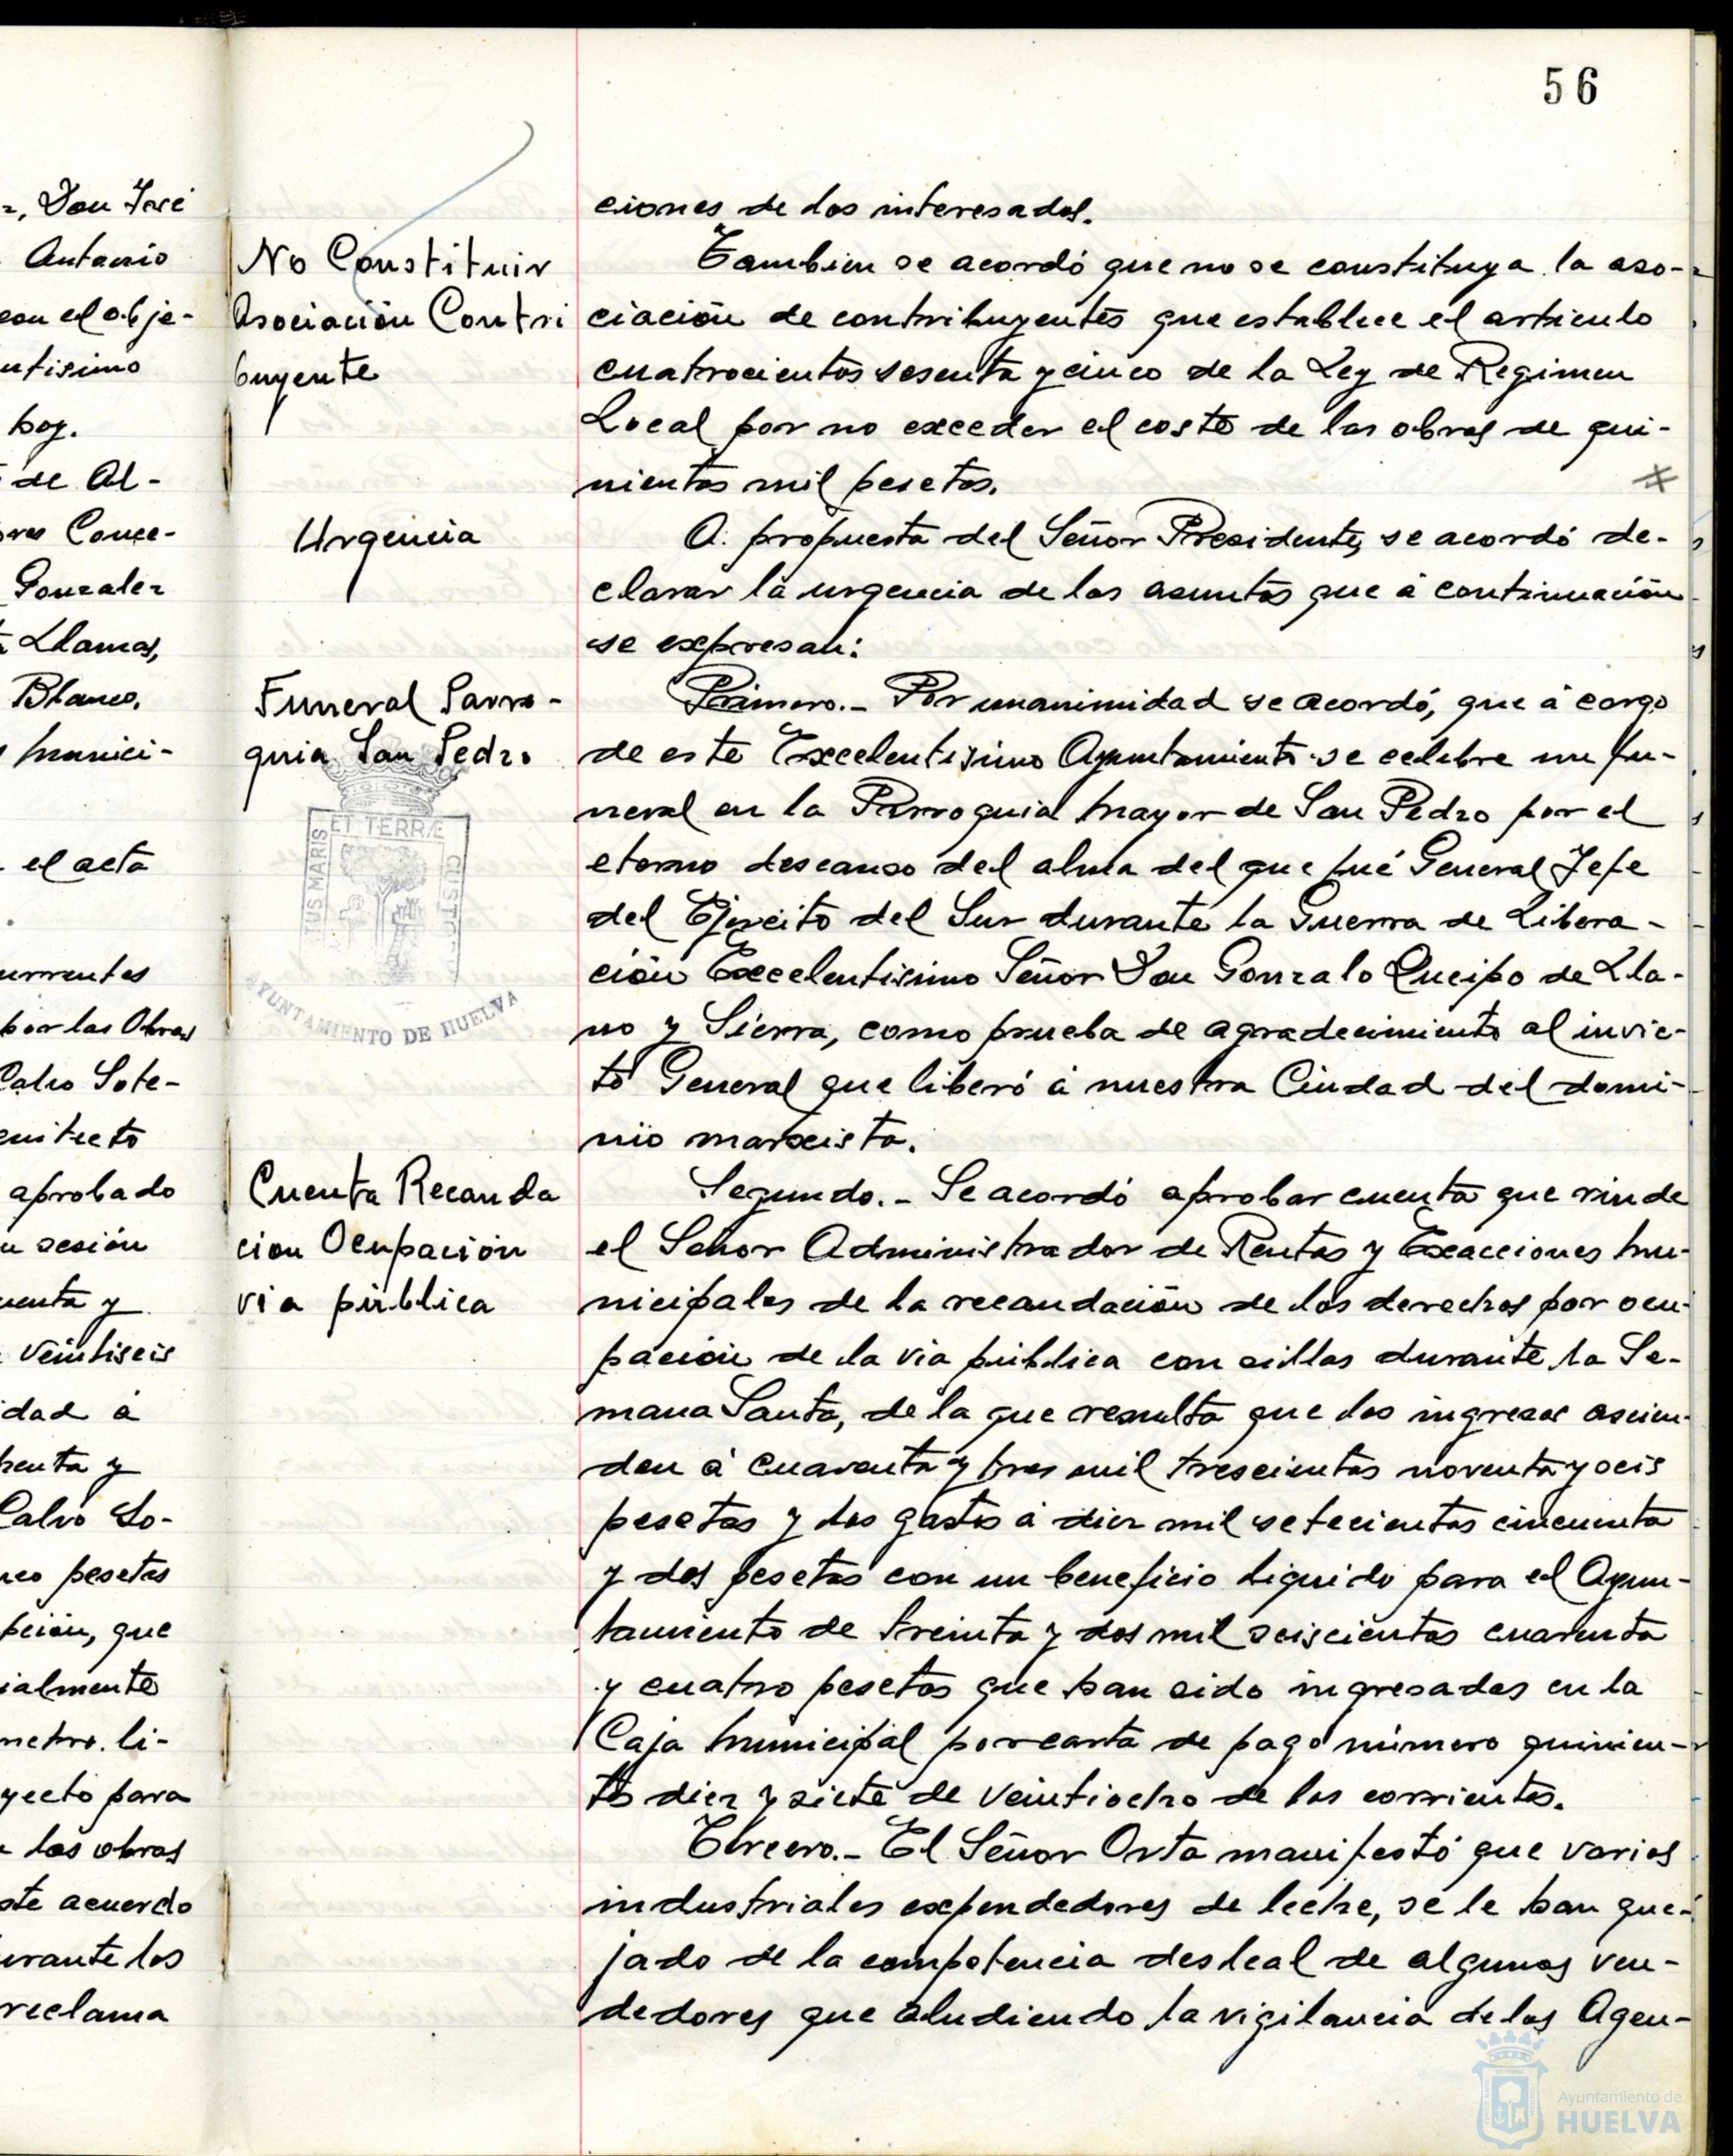 56
z, Don José
Antonio
con el obje-
ntisimo
hoy.
de Al-
ores Conce-
Gonzalez
Llamas,
Blanco,
munici-
el acta
urrentes
por las Obras
Calvo Sote-
quitecto
aprobado
n sesión
uenta y
veintiseis
idad á
henta y
Calvo So-
nco pesetas
pción, que
ialmente
metro li-
yecto para
las obras
ste acuerdo
urante los
reclama
No Constituir
Asociación Contri
buyente
Urgencia
Funeral Parro-
quia San Pedro
PORTUS MARIS ET TERRÆ CUSTO
AYUNTAMIENTO DE HUELVA
Cuenta Recauda
cion Ocupación
via pública
ciones de los interesados.
Tambien se acordó que no se constituya la aso-
ciación de contribuyentes que establece el articulo
cuatrocientos sesenta y cinco de la Ley de Regimen
Local por no exceder el coste de las obras de qui-
nientas mil pesetas.
A propuesta del Señor Presidente, se acordó de-
clarar la urgencia de los asuntos que á continuación
se expresan:
Primero.- Por unanimidad se acordó, que á cargo
de este Excelentisimo Ayuntamiento se celebre un fu-
neral en la Parroquia Mayor de San Pedro por el
eterno descanso del alma del que fué General Jefe
del Ejercito del Sur durante la Guerra de Libera-
ción Excelentisimo Señor Don Gonzalo Queipo de Lla-
no y Sierra, como prueba de agradecimiento al invic-
to General que liberó á nuestra Ciudad del domi-
nio marxista.
Segundo.- Se acordó aprobar cuenta que rinde
el Señor Administrador de Rentas y Exacciones Mu-
nicipales de la recaudación de los derechos por ocu-
pación de la via pública con sillas durante la Se-
mana Santa, de la que resulta que los ingresos ascien-
den á cuarenta y tres mil trescientas noventa y seis
pesetas y los gastos á diez mil setecientas cincuenta
y dos pesetas con un beneficio liquido para el Ayun-
tamiento de treinta y dos mil seiscientas cuarenta
y cuatro pesetas que han sido ingresadas en la
Caja Municipal por carta de pago número quinien-
tos diez y siete de veintiocho de los corrientes.
Tercero.- El Señor Orta manifestó que varios
industriales expendedores de leche, se le han que-
jado de la competencia desleal de algunos ven-
dedores que eludiendo la vigilancia de los Agen-
Ayuntamiento de
HUELVA